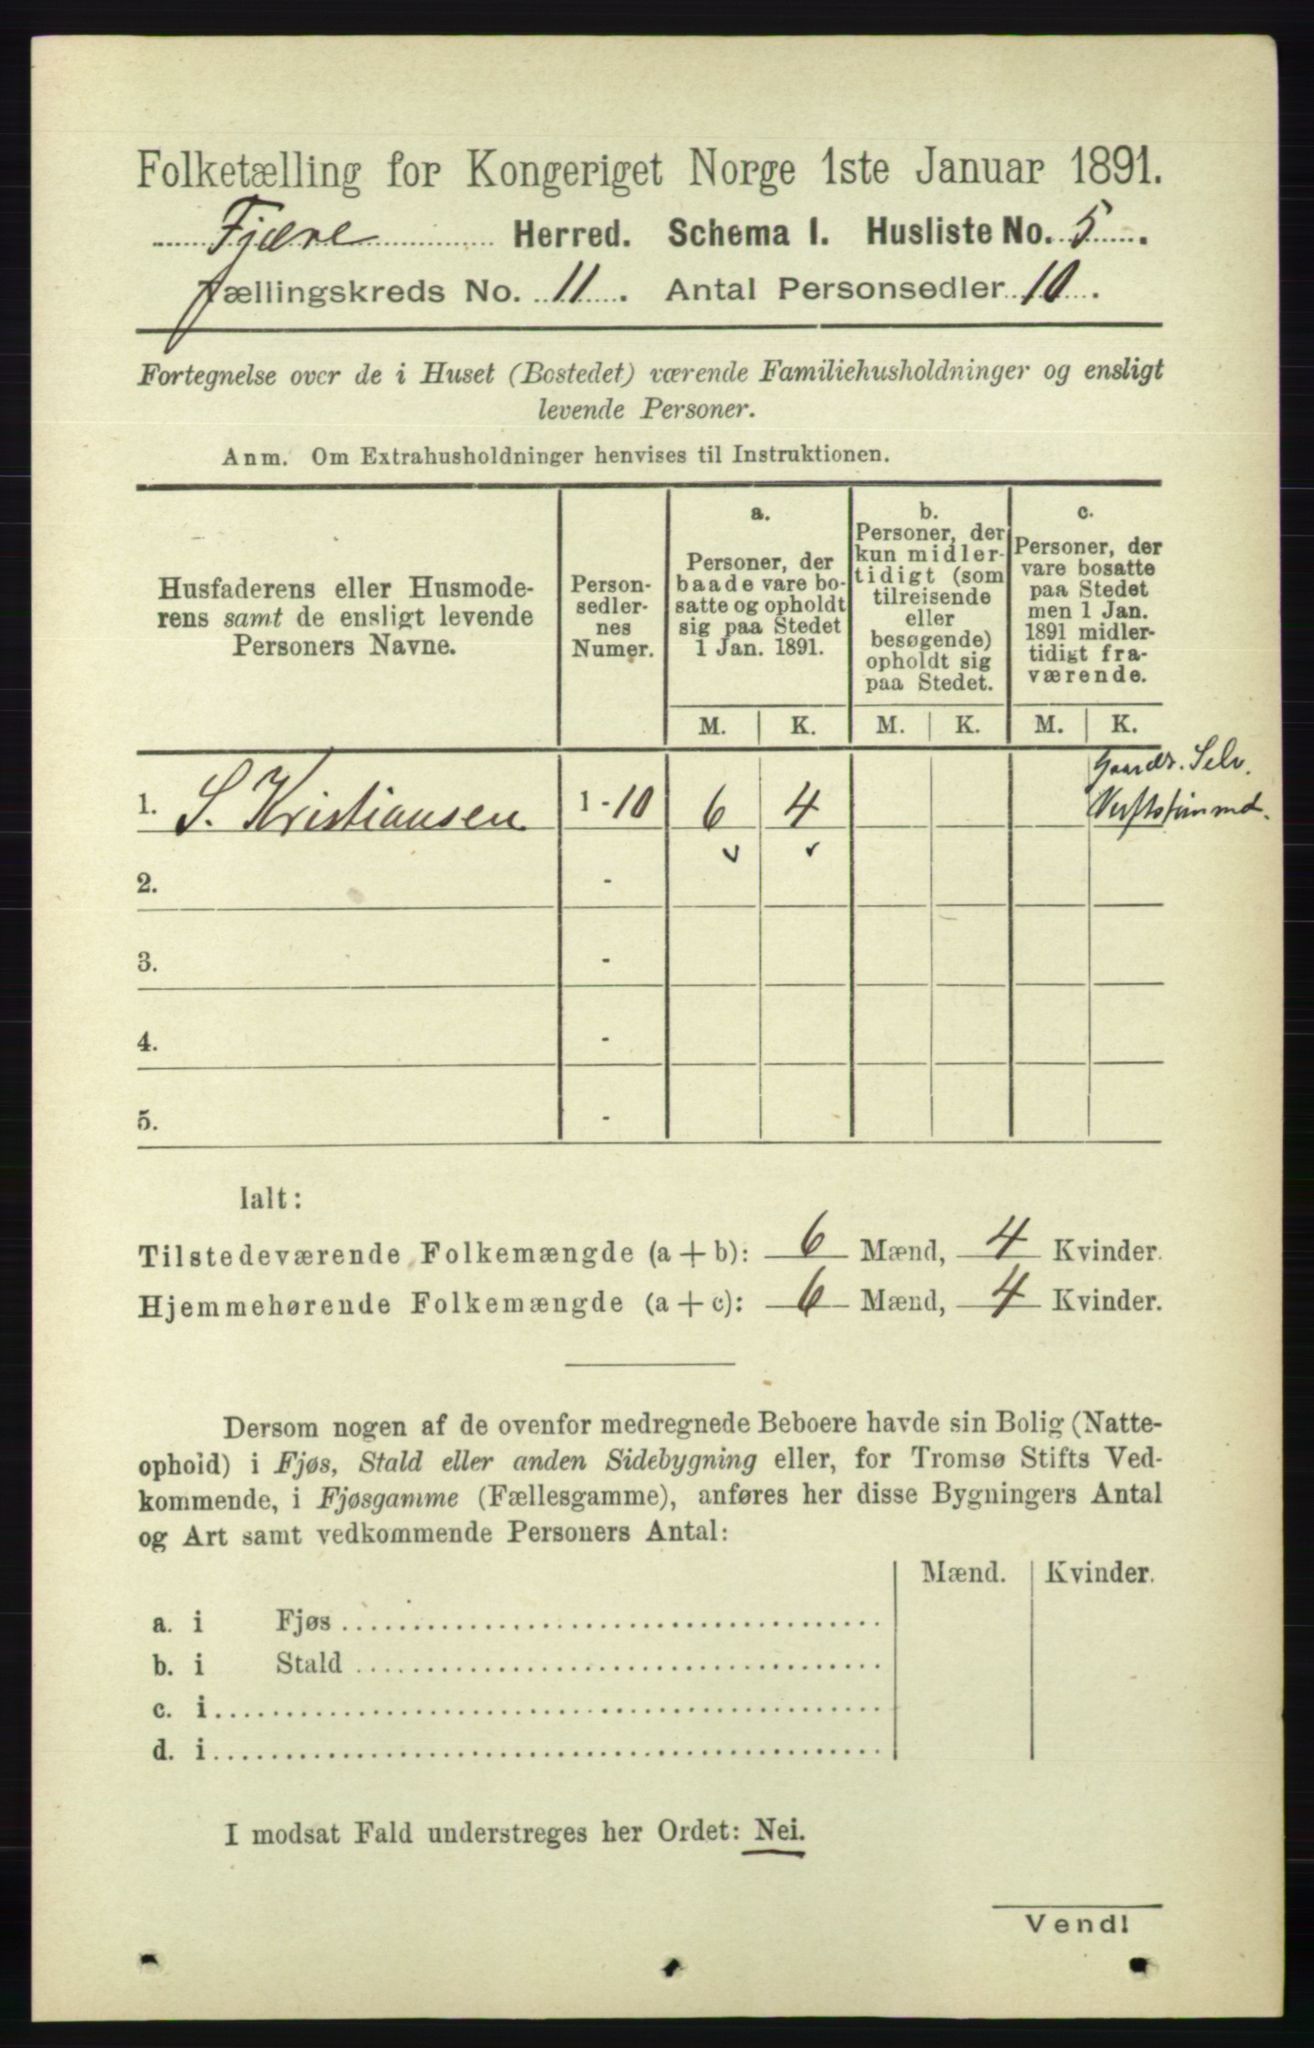 Folketælling for Kongeriget Norge 1ste Januar 1891.
Fjære Herred. Schema I. Husliste No. 5.
Tællingskreds No. 11. Antal Personsedler 10.
Fortegnelse over de i Huset (Bostedet) værende Familiehusholdninger og ensligt
levende Personer.
Anm. Om Extrahusholdninger henvises til Instruktionen.
Husfaderens eller Husmode-
rens samt de ensligt levende
Personers Navne.
Person-
sedler-
nes
Numer.
a.
Personer, der
baade vare bo-
satte og opholdt
sig paa Stedet
1 Jan. 1891.
b.
Personer, der
kun midler-
tidigt (som
tilreisende
eller
besøgende)
opholdt sig
paa Stedet.
c.
Personer, der
vare bosatte
paa Stedet
men 1 Jan.
1891 midler-
tidigt fra-
værende.
M. K. M. K. M. K.
Gaardr. Selv.
1. S. Kristiansen 1-10 6 4
2. -
3. -
4. -
5. -
Ialt:
Tilstedeværende Folkemængde (a + b): 6 Mænd, 4 Kvinder.
Hjemmehørende Folkemængde (a + c): 6 Mænd, 4 Kvinder.
Dersom nogen af de ovenfor medregnede Beboere havde sin Bolig (Natte-
ophold) i Fjøs, Stald eller anden Sidebygning eller, for Tromsø Stifts Ved-
kommende, i Fjøsgamme (Fællesgamme), anføres her disse Bygningers Antal
og Art samt vedkommende Personers Antal:
Mænd. Kvinder.
a. i Fjøs
b. i Stald
c. i
d. i
I modsat Fald understreges her Ordet: Nei.
Vend!